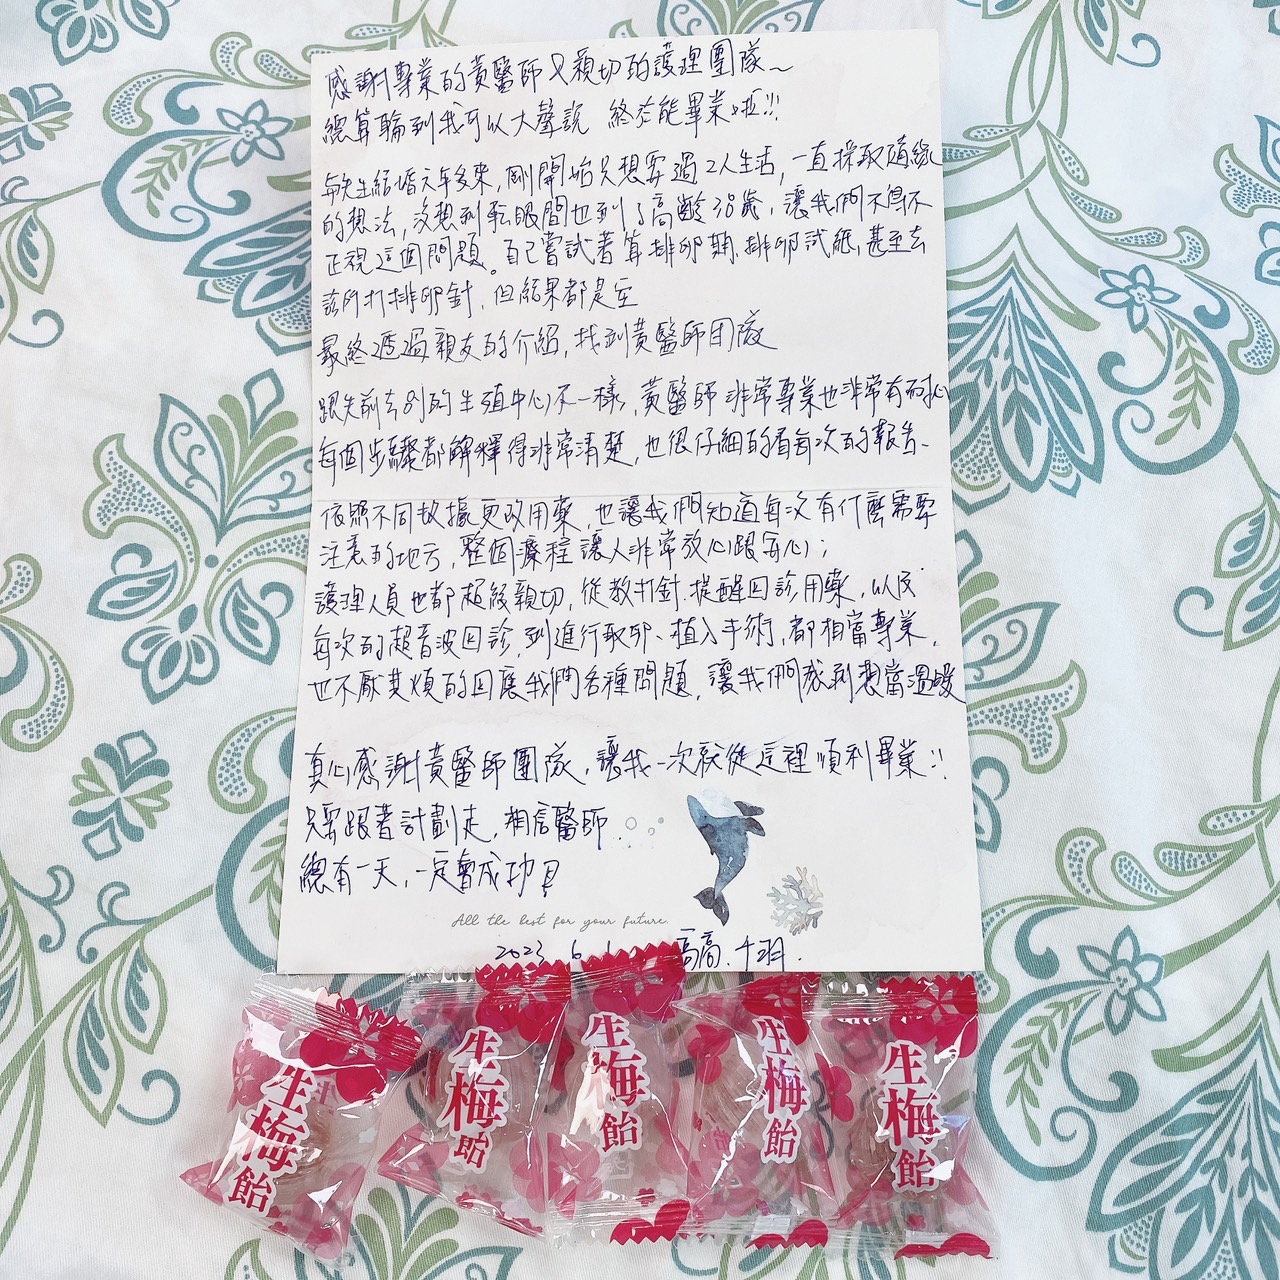 感謝專業的黃醫師及親切的護理團隊~
總算輪到我可以大聲說 終於能畢業啦!!
與先生結婚六年多來,剛開始只想要過2人生活,一直採取隨緣
的想法,沒想到轉眼間也到了高齡38歲,讓我們不得不
正視這個問題。自己嘗試著算排卵期、排卵試紙,甚至去
診所打排卵針,但結果都是空
最終透過親友的介紹,找到黃醫師團隊
跟先前去別的生殖中心不一樣,黃醫師非常專業也非常有耐心
每個步驟都解釋得非常清楚,也很仔細的看每次的報告、
依照不同數據更改用藥,也讓我們知道每次有什麼需要
注意的地方,整個療程讓人非常放心跟安心;
護理人員也都超級親切,從教打針、提醒回診用藥,以及
每次的超音波回診,到進行取卵、植入手術,都相當專業,
也不厭其煩的回應我們各種問題,讓我們感到相當溫暖
真心感謝黃醫師團隊,讓我一次就從這裡順利畢業!!
只要跟著計劃走,相信醫師
總有一天,一定會成功!
All the best for your future.
2023 6
生梅飴
生梅飴
生梅飴
生梅飴
生梅飴